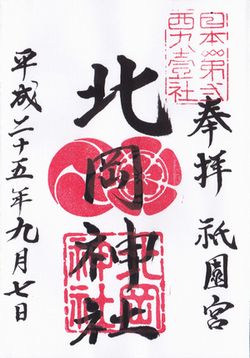 奉拝 祇園宮
北岡神社
平成二十五年九月七日
日本第弐
西九壱社
北岡
神社